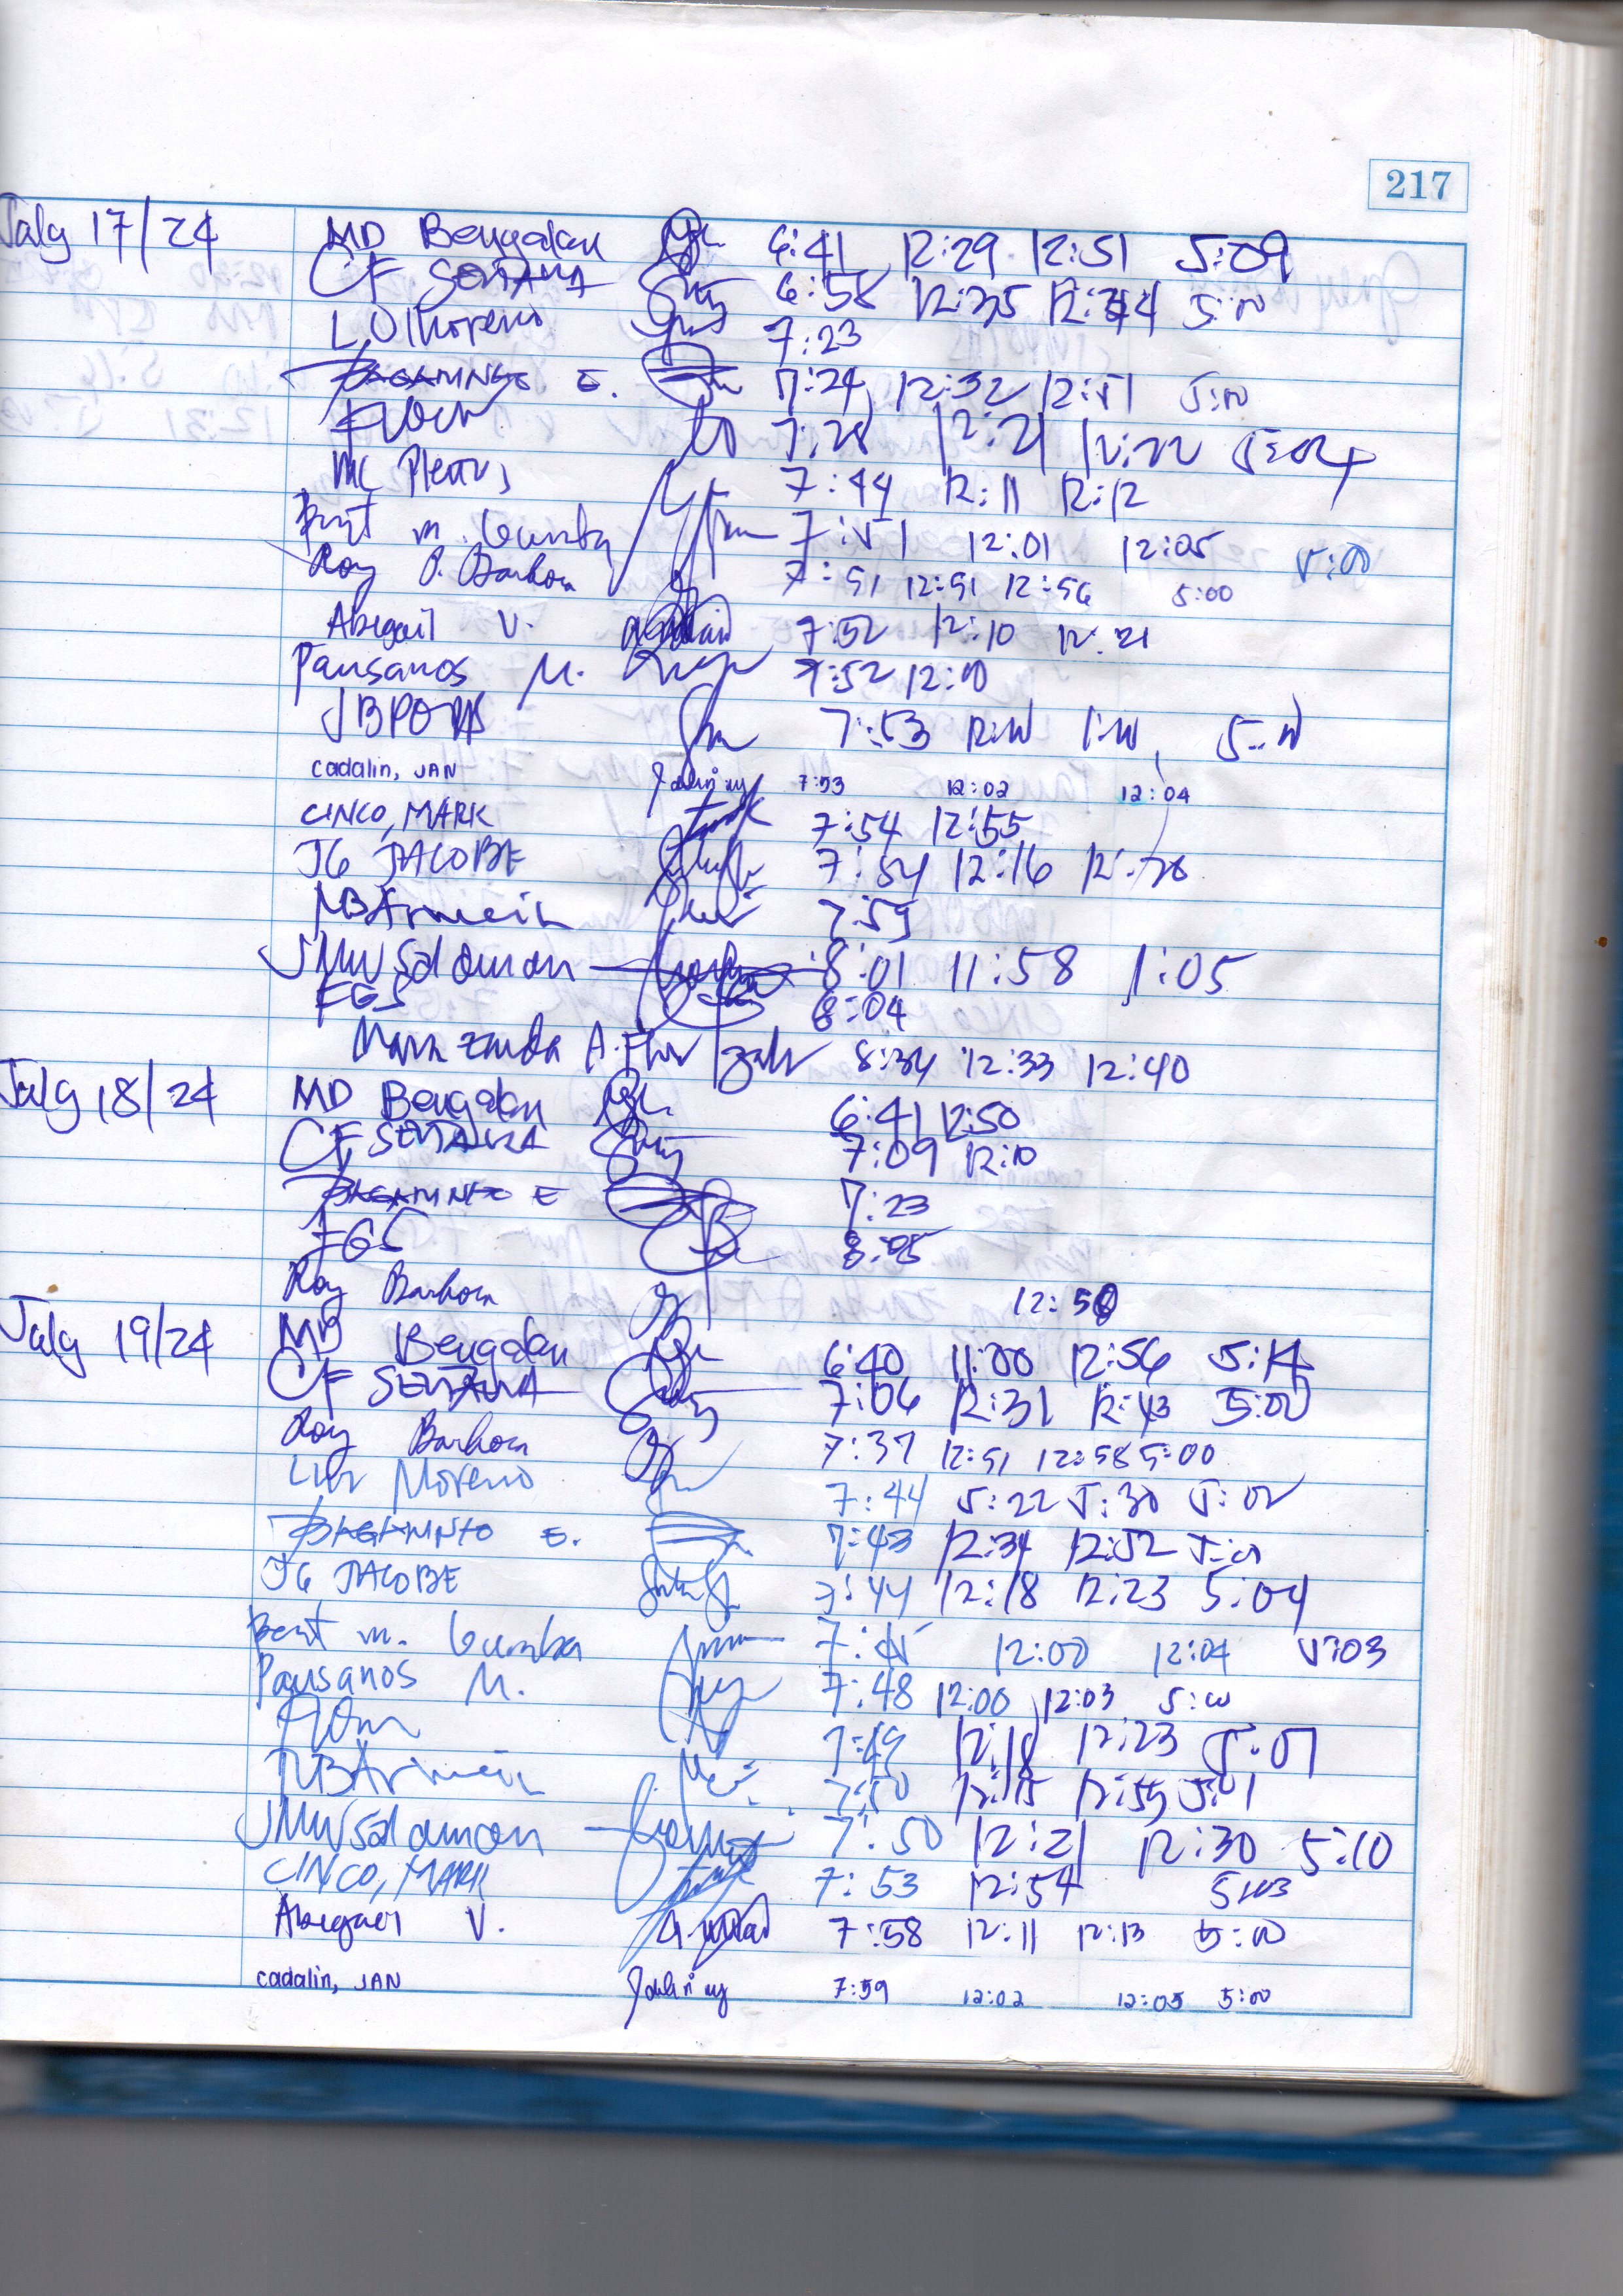 217
July 17/24 MD Bengadan 6:41 12:29 12:51 5:09
CF SENTANA 6:58 12:35 12:44 5:00
L O Moreno 7:23
E. 7:24 12:32 12:51 5:00
7:28 12:21 12:22 5:04
MC 7:44 12:11 12:12
Bent m. Gumba 7:51 12:01 12:05 5:00
Roy P. Barhom 7:51 12:51 12:56 5:00
Abegail V. 7:52 12:10 12:21
Pausanos M. 7:52 12:00
JB 7:53 12:00 1:00 5:00
cadalin, JAN 7:53 12:02 12:04
CINCO, MARK 7:54 12:55
JG JACOBE 7:54 12:16 12:20
7:59
JMW Salaman 8:01 11:58 1:05
FGS 8:04
A. Flor 8:34 12:33 12:40
July 18/24 MD Bengadan 6:41 12:50
CF SENTANA 7:09 12:10
E 7:23
FGS 8:05
Roy Barhom 12:50
July 19/24 MD Bengadan 6:40 11:00 12:56 5:14
CF SENTANA 7:06 12:31 12:43 5:00
Roy Barhom 7:37 12:51 12:58 5:00
Moreno 7:44 5:22 5:30 5:02
E. 7:43 12:34 12:52 5:01
JG JACOBE 7:44 12:18 12:23 5:04
Bent m. Gumba 7:45 12:00 12:04 5:03
Pausanos M. 7:48 12:00 12:03 5:00
7:49 12:18 12:23 5:07
7:50 12:15 12:59 5:01
JMW Salaman 7:50 12:21 12:30 5:10
CINCO, MARK 7:53 12:54 5:03
Abegail V. 7:58 12:11 12:13 5:00
cadalin, JAN 7:59 12:02 12:05 5:00